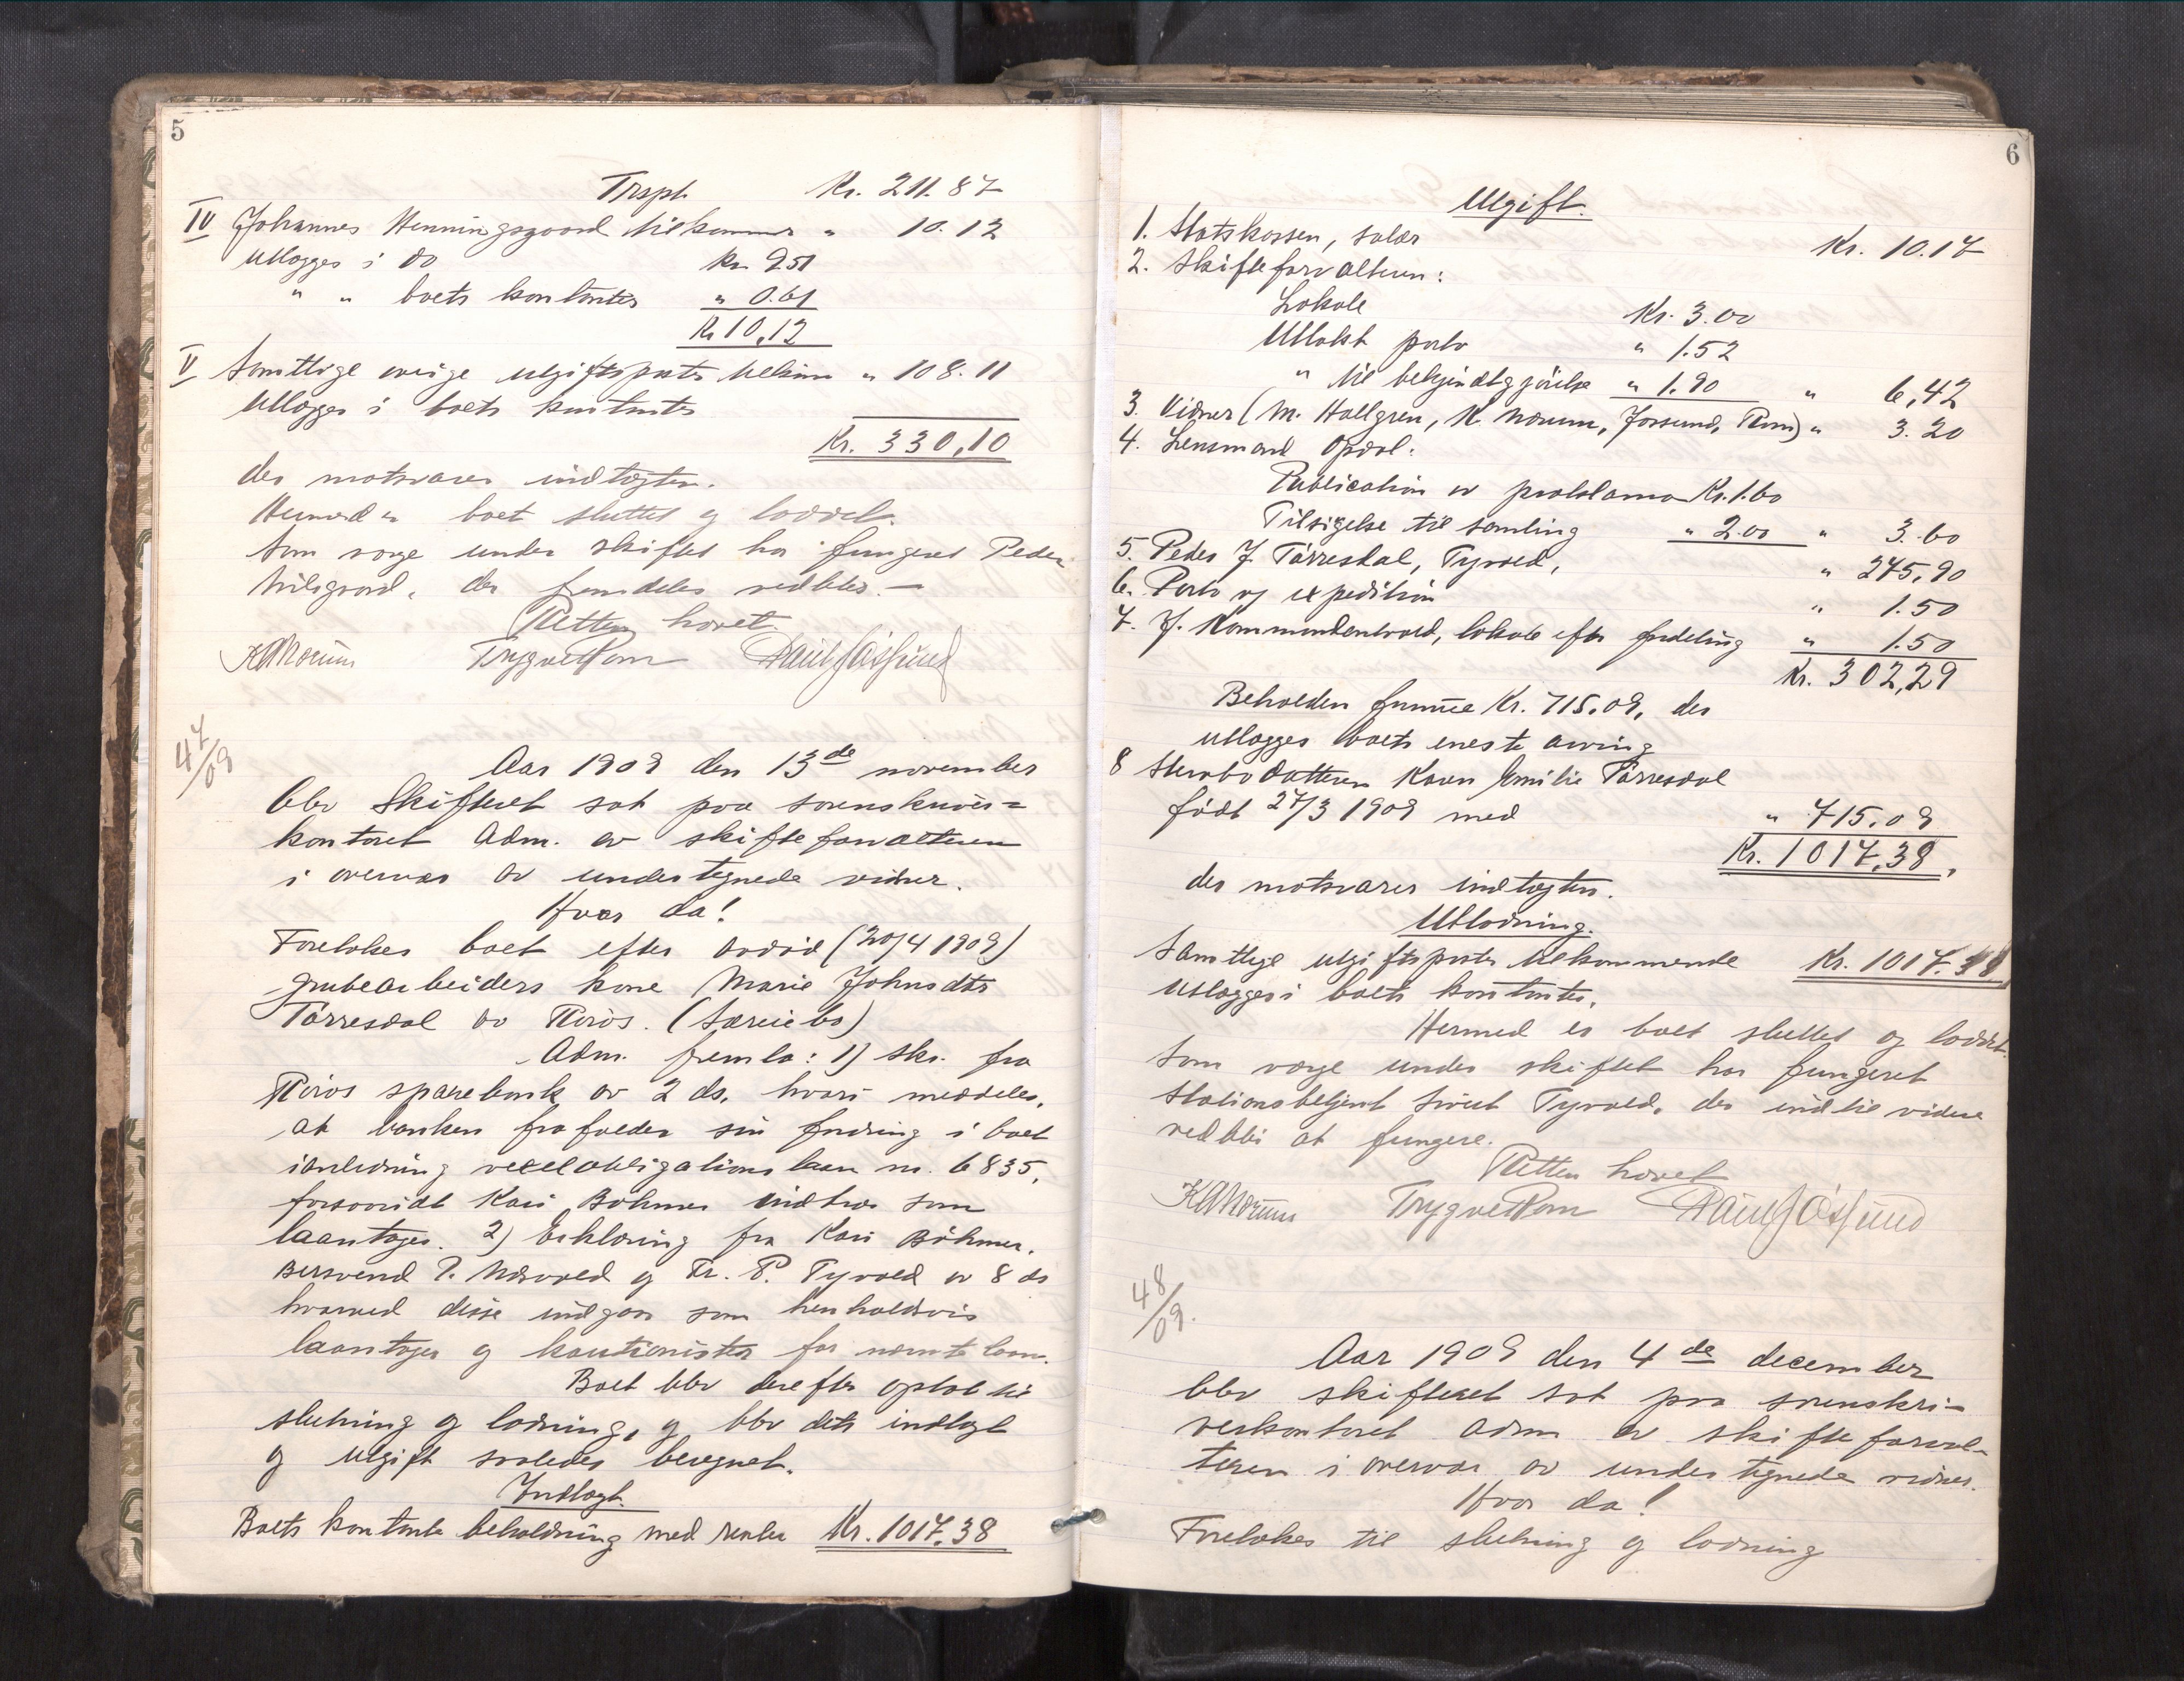 5
Trspt. Kr. 211.87
IV Johannes Henningsgaard tilkommer " 10.12
Utlægges i do Kr. 9.51
" " boets kontanter " 0.61
Kr 10,12
V Samtlige øvrige utgiftsposter tilkom " 108.11
Utlægges i boets kontanter
Kr. 330,10
der motsvarer indtægten.
Hermed er boet sluttet og loddet.
Som verge under skiftet har fungeret Peder
Nilsgaard, der fremdeles vedblir. —
Retten hævet.
KANørum Trygve Rom Paul Jossund
47/09
Aar 1909 den 13de november
blev Skifteret sat paa sorenskriver=
kontoret Adm. av skifteforvalteren
i overvær av undertegnede vidner.
Hvor da!
Foretokes boet efter avdød (20/4 1909)
grubearbeiders kone Marie Johnsdtr
Tørresdal av Røros. (Særeiebo)
Adm. fremla: 1) skr. fra
Røros sparebank av 2 ds. hvori meddeles,
at banken frafalder sin fordring i boet
i anledning vexelobligationslaan nr. 6835,
forsaavidt Kari Böhmer indtrær som
laantager. 2) Erklæring fra Kari Böhmer,
Bersvend P. Nordvold og Fr. P. Tyvold av 8 ds
hvorved disse indgaar som henholdsvis
laantager og kautionister for nævnte laan.
Boet blev derefter optat til
slutning og lodning, og blev dets indtægt
og utgift saaledes beregnet.
Indtægt.
Boets kontante beholdning med renter Kr. 1017.38
6
Utgift.
1. Statskassen, salær Kr. 10.17
2. Skifteforvalteren:
Lokale Kr. 3.00
Utlakt porto " 1.52
" til bekjendtgjørelse " 1.90 " 6,42
3. Vidner (M. Hallgren, K. Nørum, Jossund, Rom) " 3.20
4. Lensmand Opdal:
Publication av proklama Kr. 1.60
Tilsigelse til samling " 2.00 " 3.60
5. Peder J. Tørresdal, Tyvold, " 275,90
6. Porto og expedition " 1.50
7. J. Kommandantvold, lokale efter fordeling " 1.50
Kr. 302,29
Beholden formue Kr. 715,09, der
utlægges boets eneste arving
8 Stervbodatteren Karen Emilie Tørresdal
født 27/3 1909 med " 715,09
Kr. 1017,38,
der motsvarer indtægten.
Utlodning.
Samtlige utgiftsposter tilkommende Kr. 1017.38
utlægges i boets kontanter.
Hermed er boet sluttet og loddet.
Som verge under skiftet har fungeret
Stationsbetjent Tyvold, der indtil videre
vedblir at fungere.
Retten hævet
KANørum Trygve Rom Paul Jossund
48/09.
Aar 1909 den 4de december
blev skifteret sat paa sorenskri=
verkontoret adm av skifteforval=
teren i overvær av undertegnede vidner.
Hvor da!
Foretokes til slutning og lodning